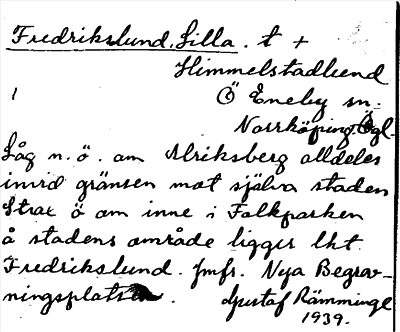 Fredrikslund, Lilla. t +
Himmelstadlund
1 Ö Eneby sn:
Norrköping. Ögl.
Låg n. ö. om Ulriksberg alldeles
invid gränsen mot själva staden
Strax ö om inne i Folkparken
å stadens område ligger lht.
Fredrikslund. Jmfr. Nya Begrav-
ningsplatsen.
Gustaf Rämminge
1939.